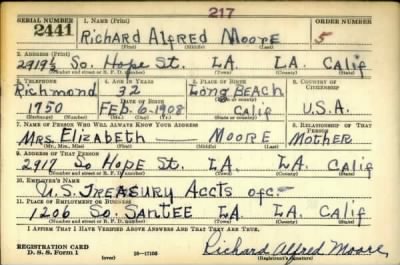 217
SERIAL NUMBER 1. NAME (Print) ORDER NUMBER
2441 Richard Alfred Moore 5
(First) (Middle) (Last)
2. ADDRESS (Print)
2919½ So. Hope St. L.A. L.A. Calif
(Number and street or R. F. D. number) (Town) (County) (State)
3. TELEPHONE 4. AGE IN YEARS 5. PLACE OF BIRTH 6. COUNTRY OF CITIZENSHIP
Richmond 32 Long Beach
DATE OF BIRTH
1750 Feb. 6-1908 Calif U.S.A.
(Exchange) (Number) (Mo.) (Day) (Yr.) (State or country)
7. NAME OF PERSON WHO WILL ALWAYS KNOW YOUR ADDRESS 8. RELATIONSHIP OF THAT PERSON
Mrs. Elizabeth — Moore Mother
(Mr., Mrs., Miss) (First) (Middle) (Last)
9. ADDRESS OF THAT PERSON
2917 So Hope St. L.A. L.A. Calif
(Number and street or R. F. D. number) (Town) (County) (State)
10. EMPLOYER'S NAME
U.S. Treasury Accts ofc.-
11. PLACE OF EMPLOYMENT OR BUSINESS
1206 So. Santee L.A. L.A. Calif
(Number and street or R. F. D. number) (Town) (County) (State)
I AFFIRM THAT I HAVE VERIFIED ABOVE ANSWERS AND THAT THEY ARE TRUE.
REGISTRATION CARD
D. S. S. Form 1 (over) 16—17105 Richard Alfred Moore
(Registrant's signature)